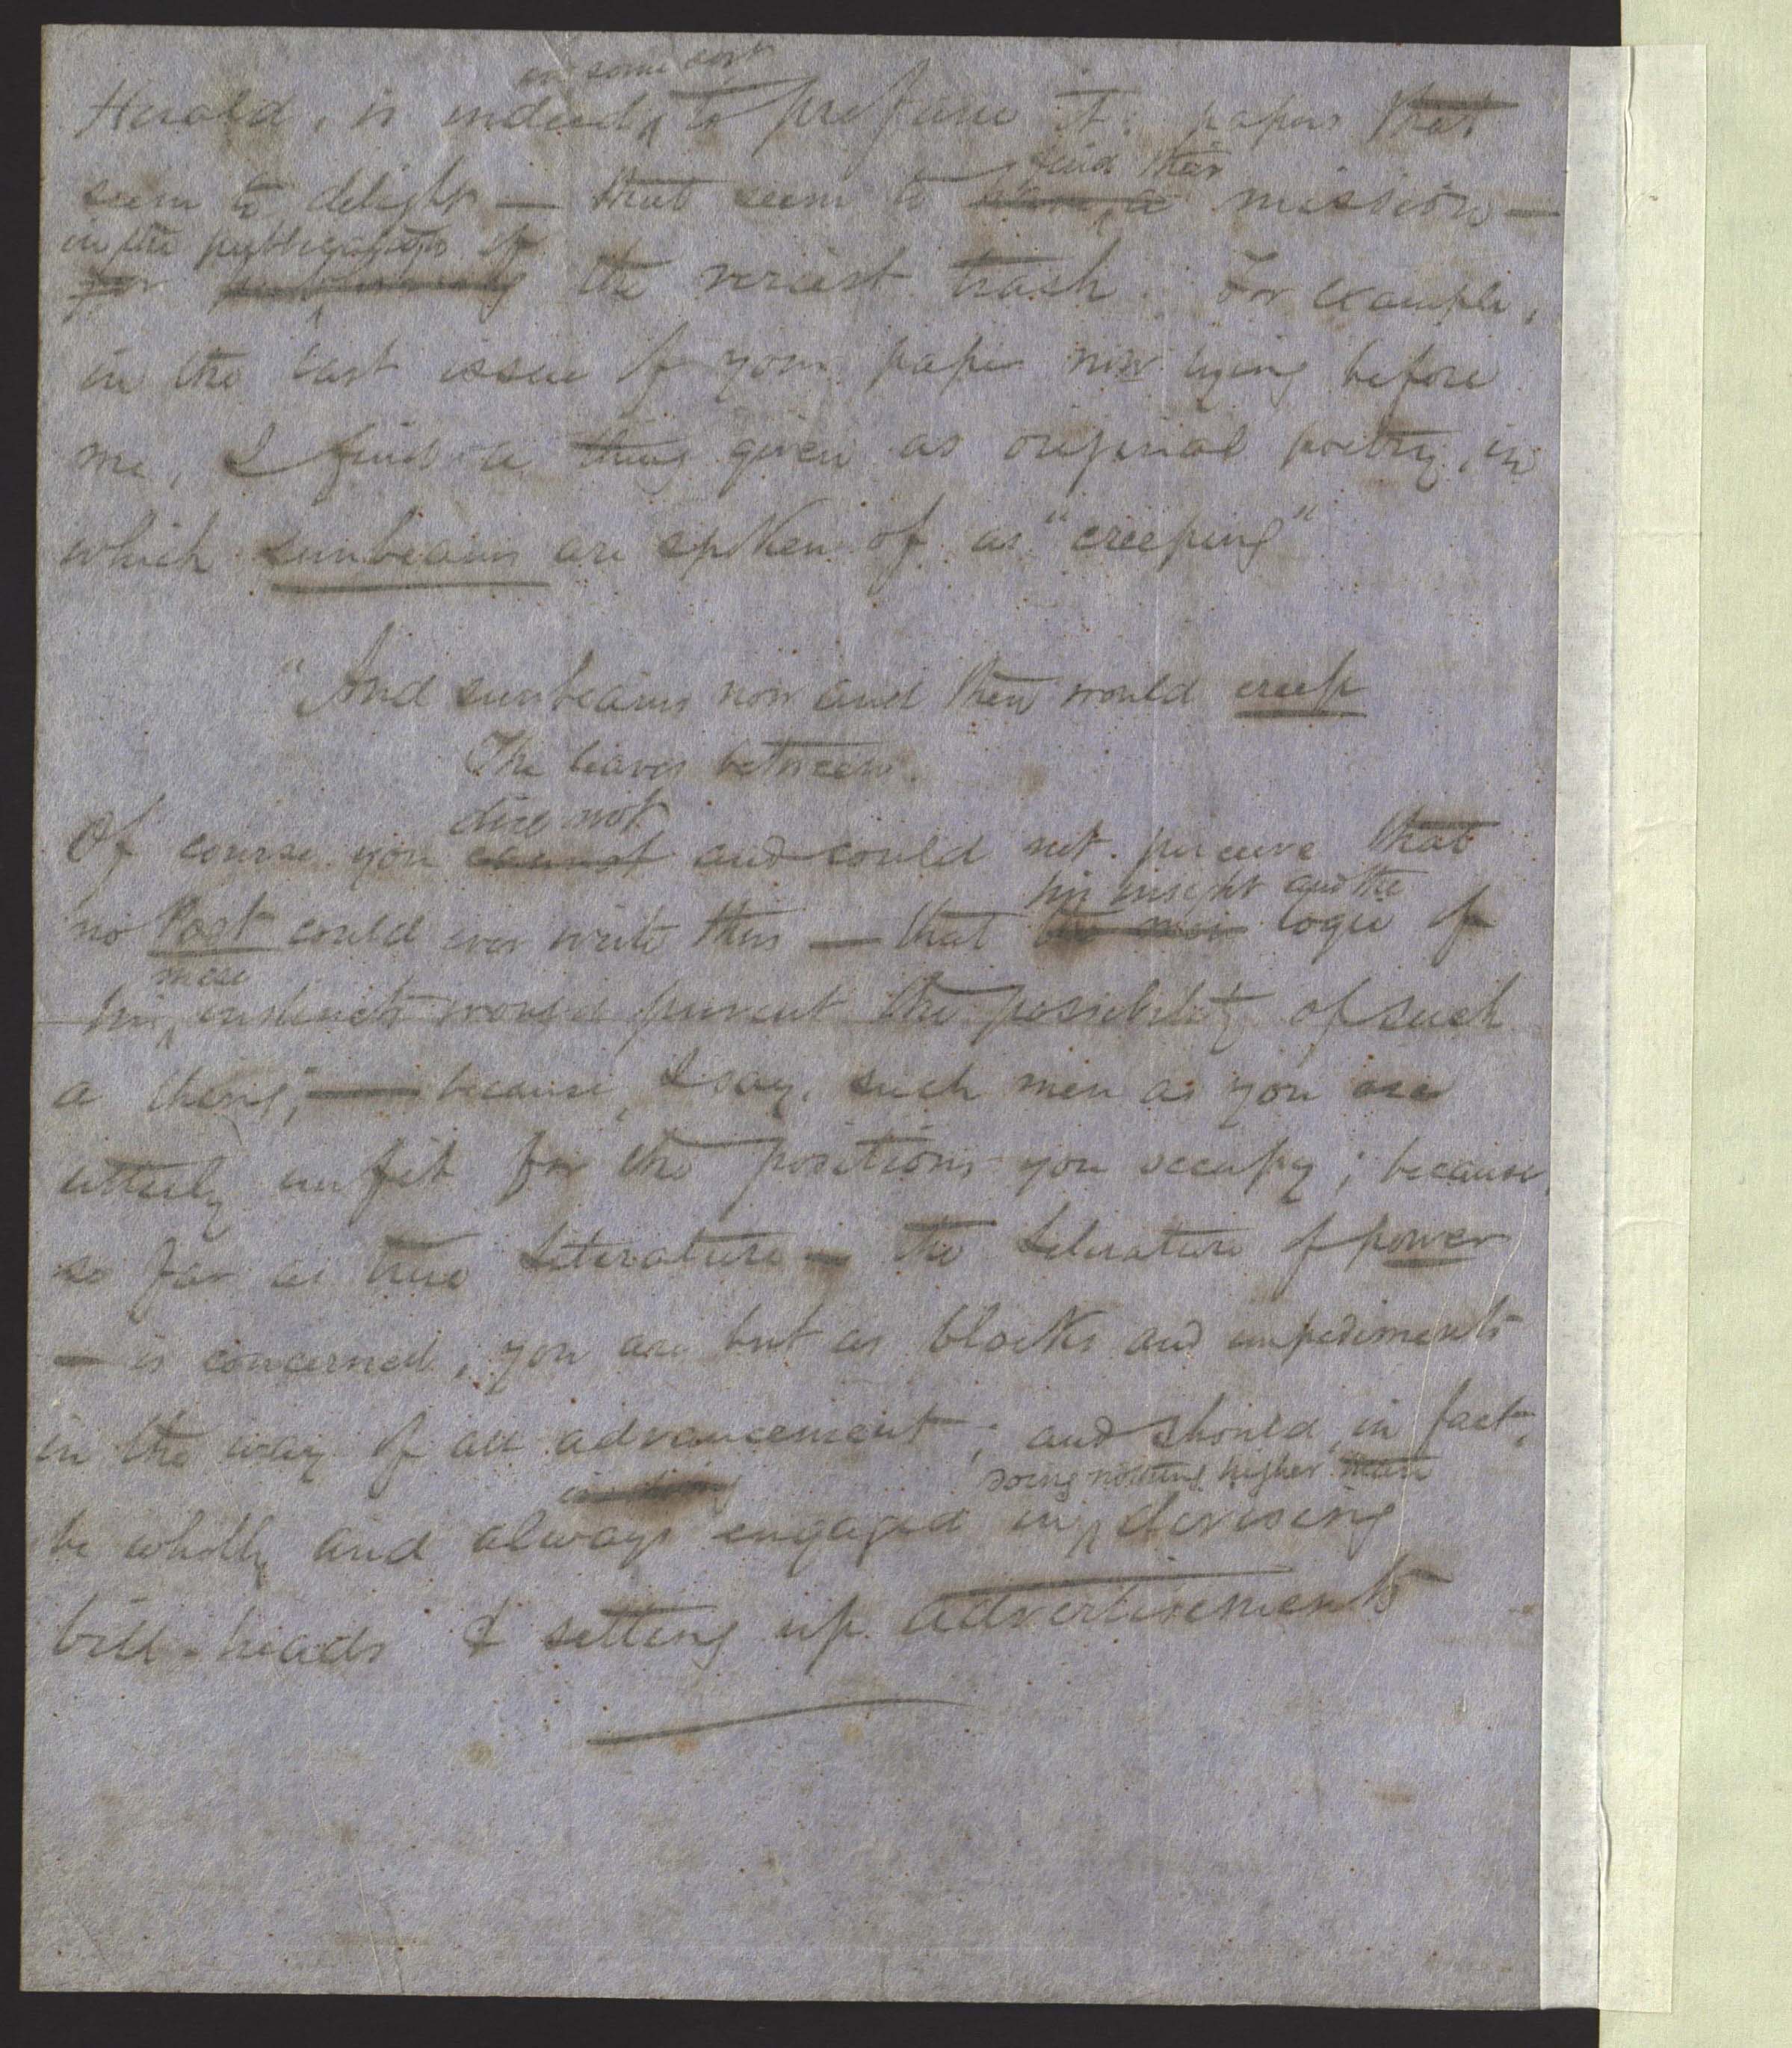 in some sort
Herald, is indeed, to profane it: papers that
seem to delight — that seem to a mission —
find their
in the publication of
for the veriest trash. For example,
in the last issue of your paper now lying before
me, I find a thing given as original poetry, in
which sunbeams are spoken of as "creeping"
"And sunbeams now and then would creep
The leaves between.
did not
Of course you cannot and could not perceive that
his insight and the
no Poet could ever write this — that logic of
mere
his instincts would prevent the possibility of such
a thing; — because, I say, such men as you are
utterly unfit for the positions you occupy; because,
so far as true Literature — the Literature of power
— is concerned, you are but as blocks and impediments
in the way of all advancement; and should, in fact,
doing nothing higher than
be wholly and always engaged in devising
bill-heads & setting up advertisements